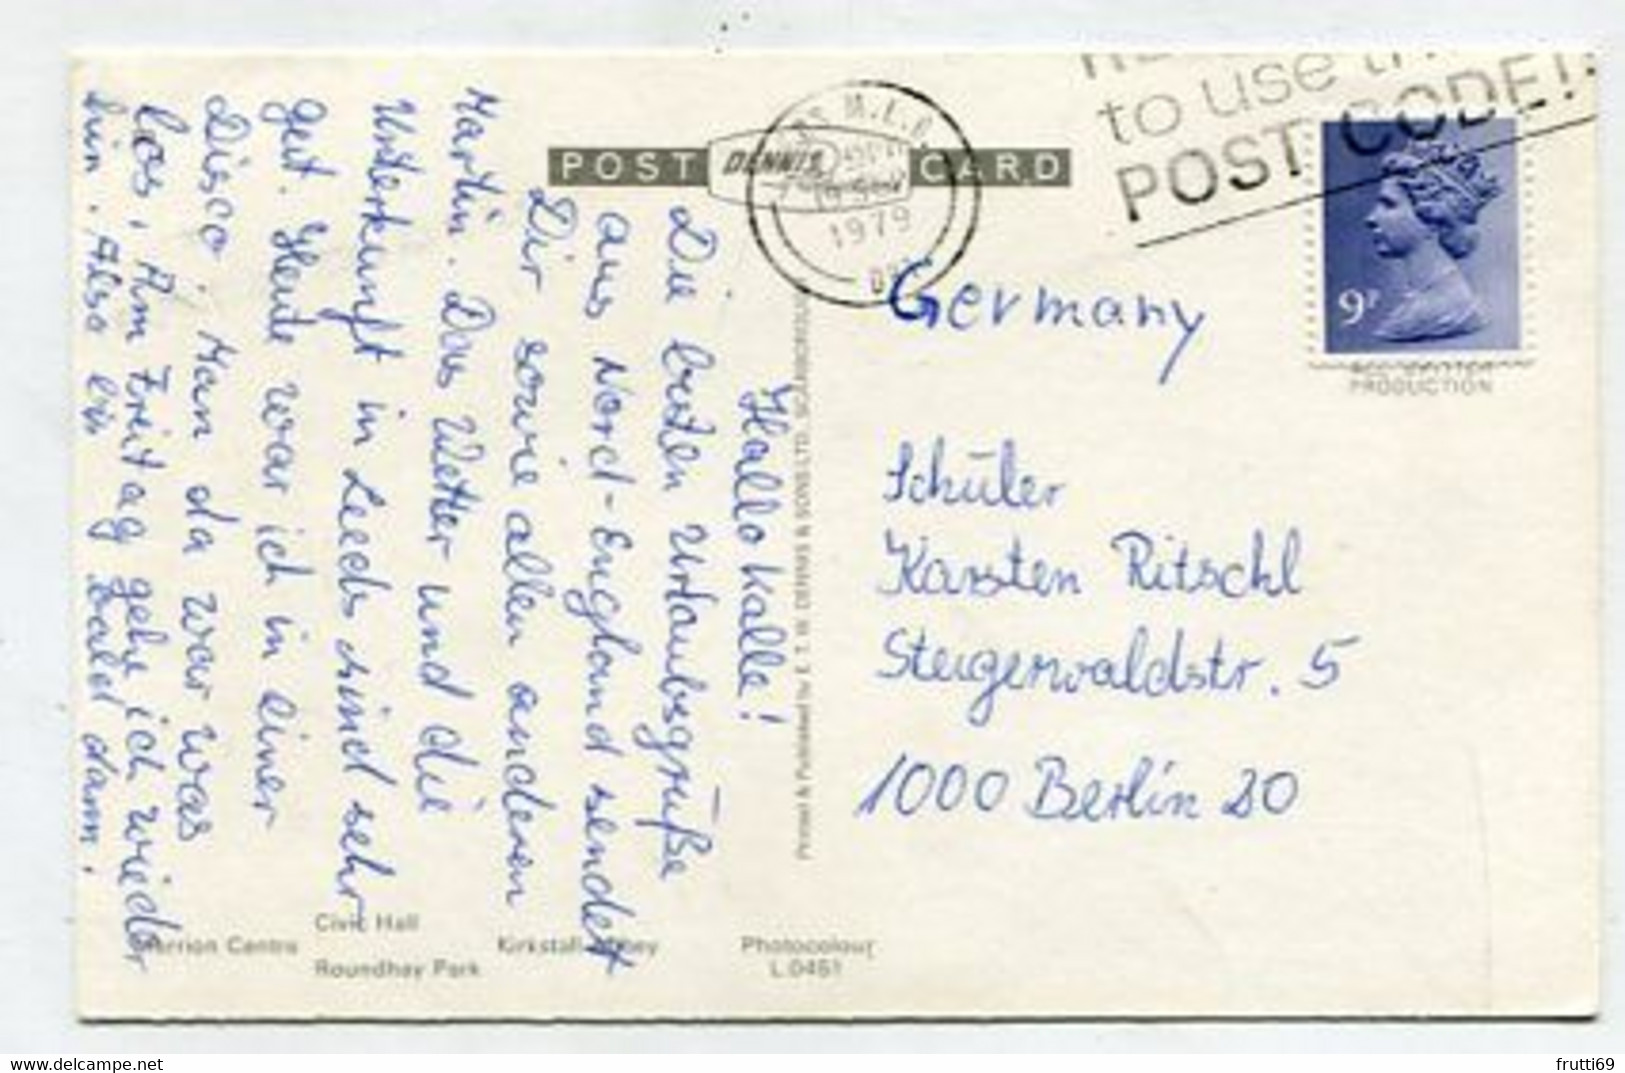 POST CARD
DENNIS
M.L.O.
1979
to use
POST CODE!
9P
PRODUCTION
Germany
Schüler
Karsten Ritschl
Steigerwaldstr. 5
1000 Berlin 20
Hallo Kalle!
Die besten Urlaubsgrüße
aus Nord-England sendet
Dir sowie allen anderen
Martin. Das Wetter und die
Unterkunft in Leeds sind sehr
gut. Heute war ich in einer
Disco. Man da war was
los. Am Freitag gehe ich wieder
hin. Also bis bald dann.
Printed & Published by E. T. W. DENNIS & SONS LTD. SCARBOROUGH
Merrion Centre
Civic Hall
Roundhay Park
Kirkstall Abbey
Photocolour
L.0451
delcampe.net
frutti69